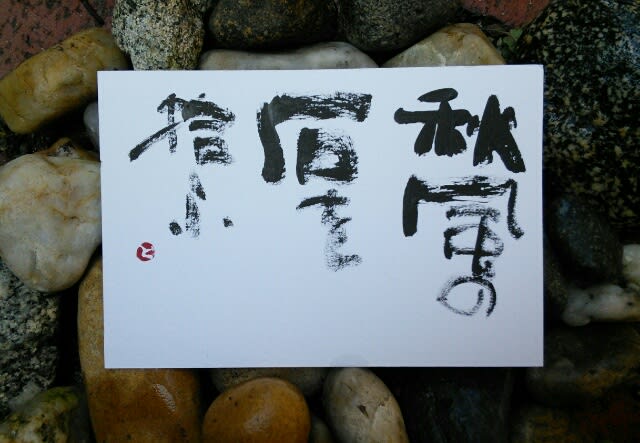 秋風の
石を
拾ふ